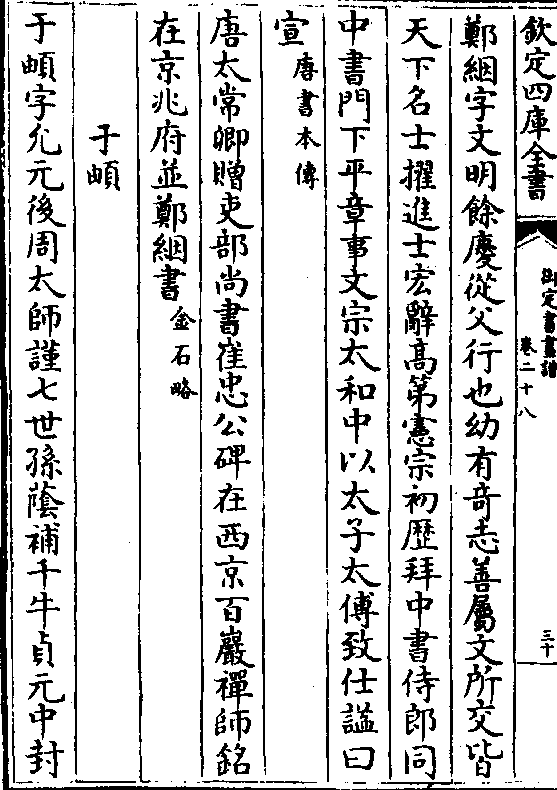 欽定四庫全書
御定書畫譜
卷二十八
三十
鄭絪字文明餘慶從父行也幼有竒志善屬文所交皆
天下名士擢進士宏辭髙第憲宗初歴拜中書侍郎同
中書門下平章事文宗太和中以太子太傅致仕諡曰
宣唐書本傳
唐太常卿贈吏部尚書崔忠公碑在西京百巖禪師銘
在京兆府並鄭絪書金石略
于頔
于頔字允元後周太師謹七世孫蔭補千牛貞元中封